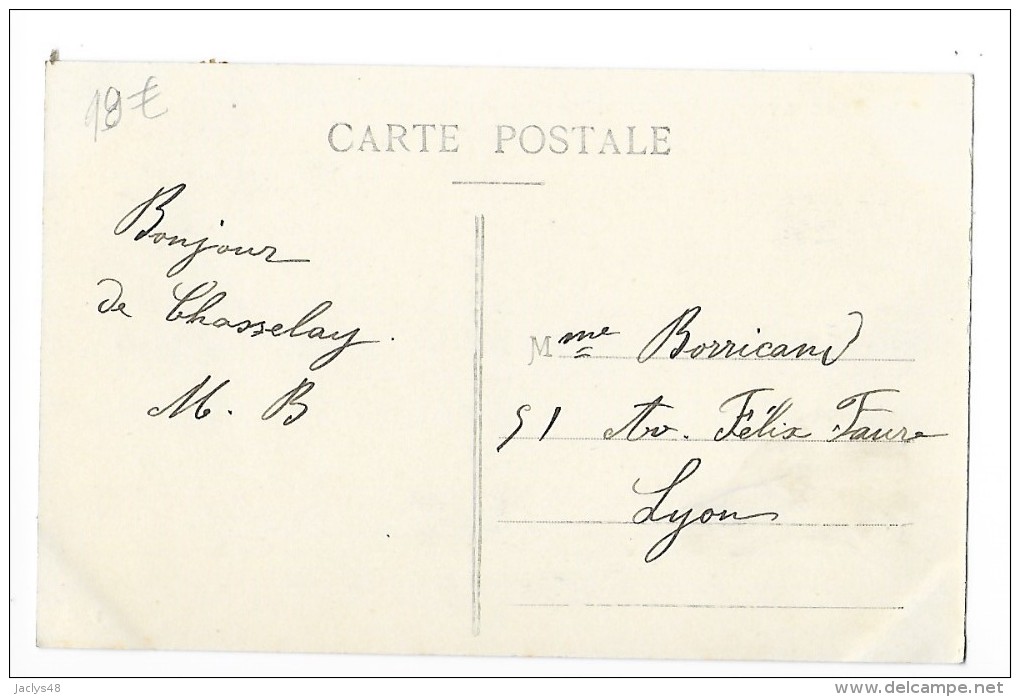 18€
CARTE POSTALE
Bonjour
de Chasselay.
M. B
Mme Borricand
51 Av. Félix Faure
Lyon
jaclys48
www.delcampe.net